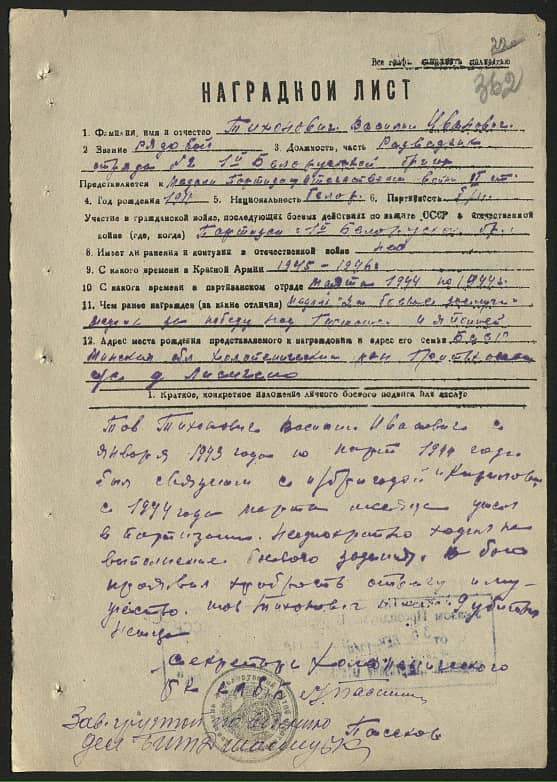 22
Все графы заполнять полностью
362
НАГРАДНОЙ ЛИСТ
1. Фамилия, имя и отчество Тихонович Василий Иванович
2 Звание рядовой 3. Должность, часть Разведчик
отряда №2 1ой Белорусской бриг.
Представляется к медали Партизан Отечественной войны II ст.
4. Год рождения 1911 5. Национальность белор. 6. Партийность б/п
Участие в гражданской войне, последующих боевых действиях по защите СССР и отечественной
войне (где, когда) Партизан 1ой Белорусской бр.
8. Имеет ли ранения и контузии в отечественной войне нет
9. С какого времени в Красной Армии 1945-1946г
10 С какого времени в партизанском отряде марта 1944 по 1944г.
11. Чем ранее награжден (за какие отличия) медаль "За боевые заслуги"
медаль за победу над Германией и Японией
12. Адрес места рождения представляемого к награждению и адрес его семьи БССР
Минская обл Холопенический р-он
с/с д
1. Краткое, конкретное изложение личного боевого подвига или заслуг
Тов Тихонович Василий Иванович с
января 1943 года по март 1944 года
был связным с бригадой
с 1944 года марта месяца ушел
в партизаны. Неоднократно ходил на
выполнение боевого задания. В бою
проявил храбрость отвагу и му-
жество. тов Тихонович убитых
немца
Секретарь Холопенического
РК КПБ
Зав. группой по
Пасеков